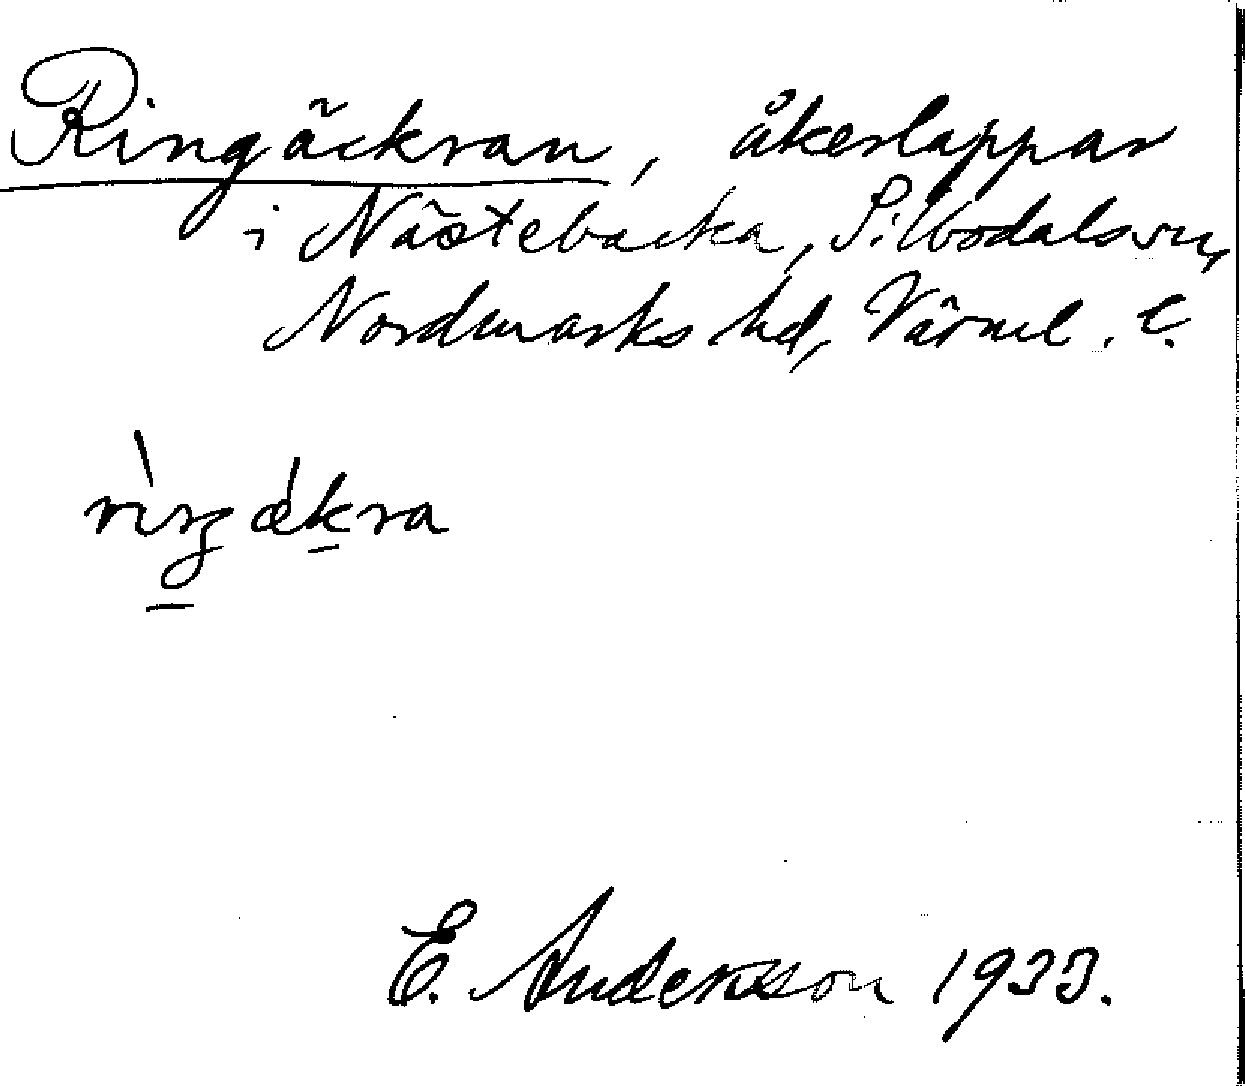 Ringäckran, åkerlappar
i Nästebacka, Silbodals sn,
Nordmarks hd, Värml. l.
rìŋgǽkra
E. Andersson 1933.